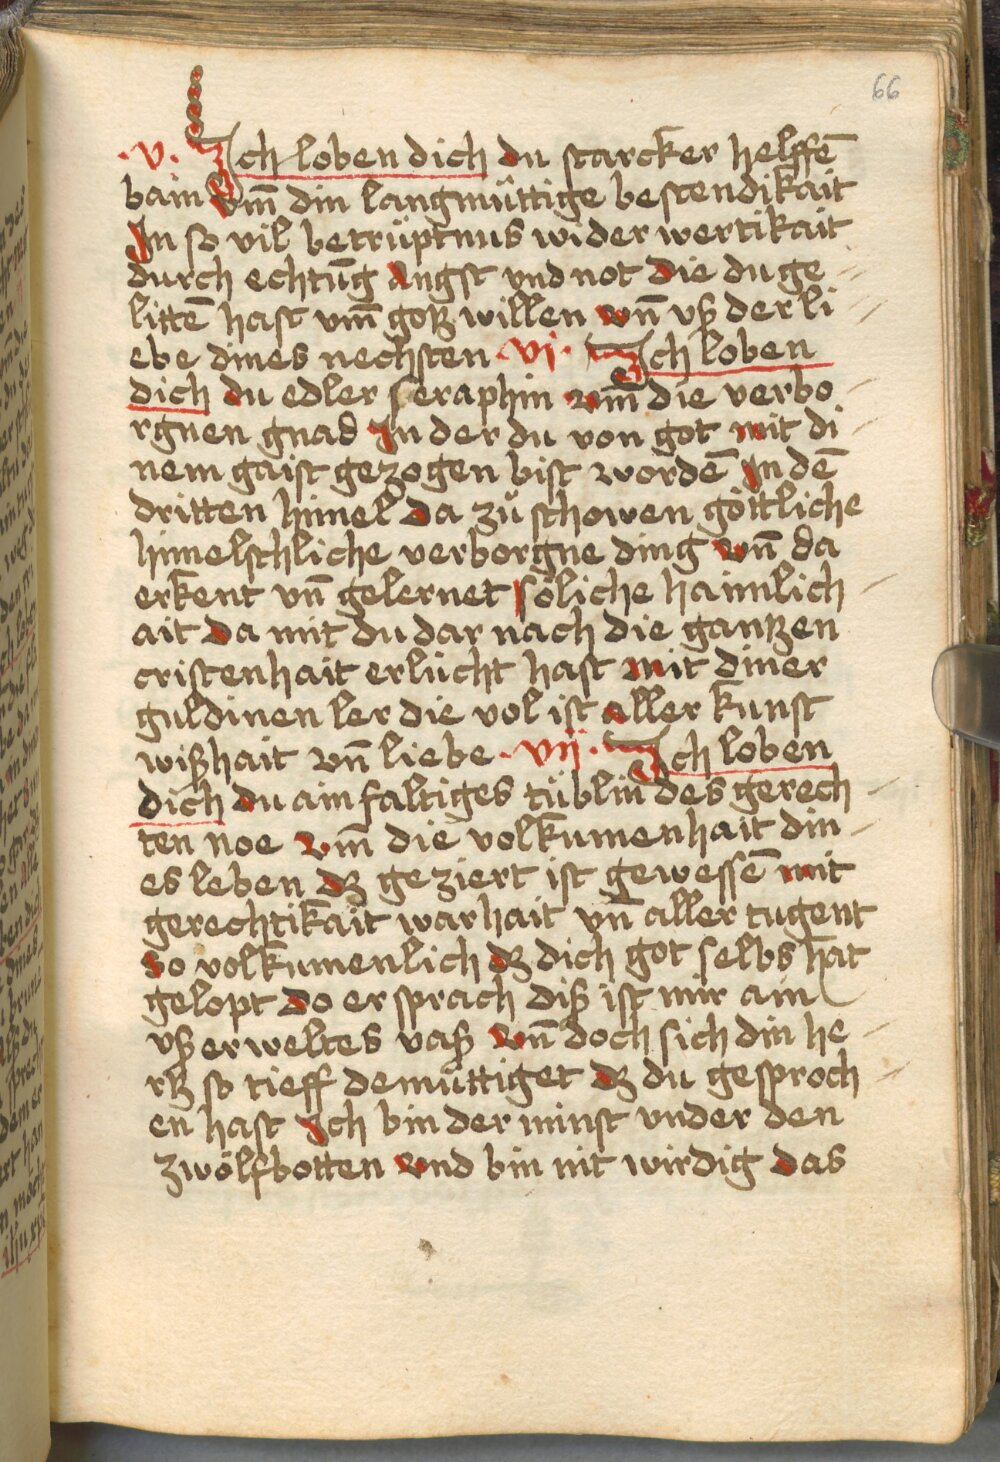 66
·v· Ich loben dich du starcker helffē
bain vm̄ din langmůttige bestendikait
In so vil betrüptnus wider wertikait
durch echtūg angst vnd not die du ge
littē hast vm̄ gotz willen vn̄ vß der li
ebe dines nechsten ·vi· Ich loben
dich du edler seraphin vm̄ die verbo
rgnen gnad In der du von got mit di
nem gaist gezogen bist wordē In dē
dritten himel da zů schowen göttliche
himelschliche verborgne ding vn̄ da
erkent vn̄ gelernet söliche haimlich
ait da mit du dar nach die gantzen
cristenhait erlücht hast mit diner
guldinen ler die vol ist aller kunst
wißhait vn̄ liebe ·vij· Ich loben
dich du ainfaltiges tüblin des gerech
ten noe vm̄ die volkumenhait din
es leben dz geziert ist gewessē mit
gerechtikait warhait vn̄ aller tugent
so volkumenlich dz dich got selbs hat
gelopt do er sprach diß ist mir ain
vß erweltes vaß vn̄ doch sich din he
rtz so tieff demůttiget dz du gesproch
en hast Ich bin der minst vnder den
zwölfbotten vnd bin nit wirdig das